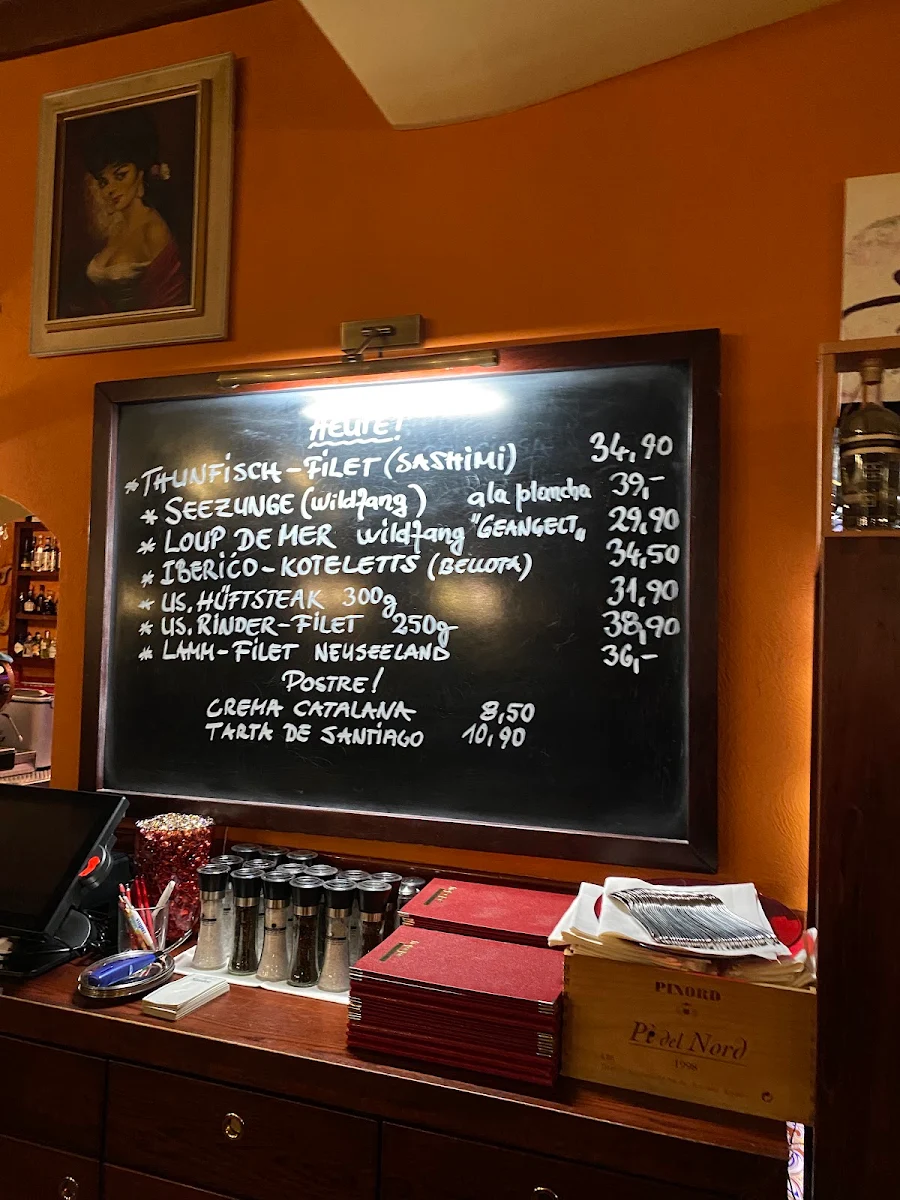 HEUTE!
* THUNFISCH-FILET (SASHIMI) 34,90
* SEEZUNGE (wildfang) a la plancha 39,-
* LOUP DE MER wildfang "GEANGELT„ 29,90
* IBERICO-KOTELETTS (BELLOTA) 34,50
* US. HÜFTSTEAK 300g 31,90
* US. RINDER-FILET 250g 38,90
* LAMM-FILET NEUSEELAND 36,-
POSTRE!
CREMA CATALANA 8,50
TARTA DE SANTIAGO 10,90
PINORD
Pi del Nord
1998